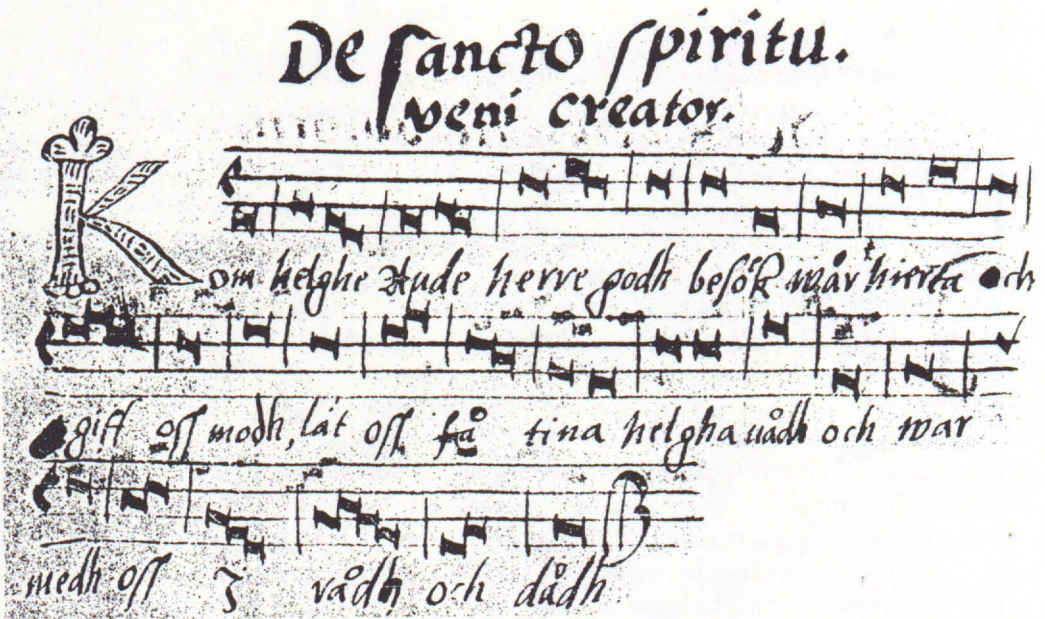 De sancto spiritu.
veni creator.
Kom helghe Ande herre godh besök wår hierta och
giff oss modh, låt oss få tina helgha rådh och war
medh oss J rådh och dådh